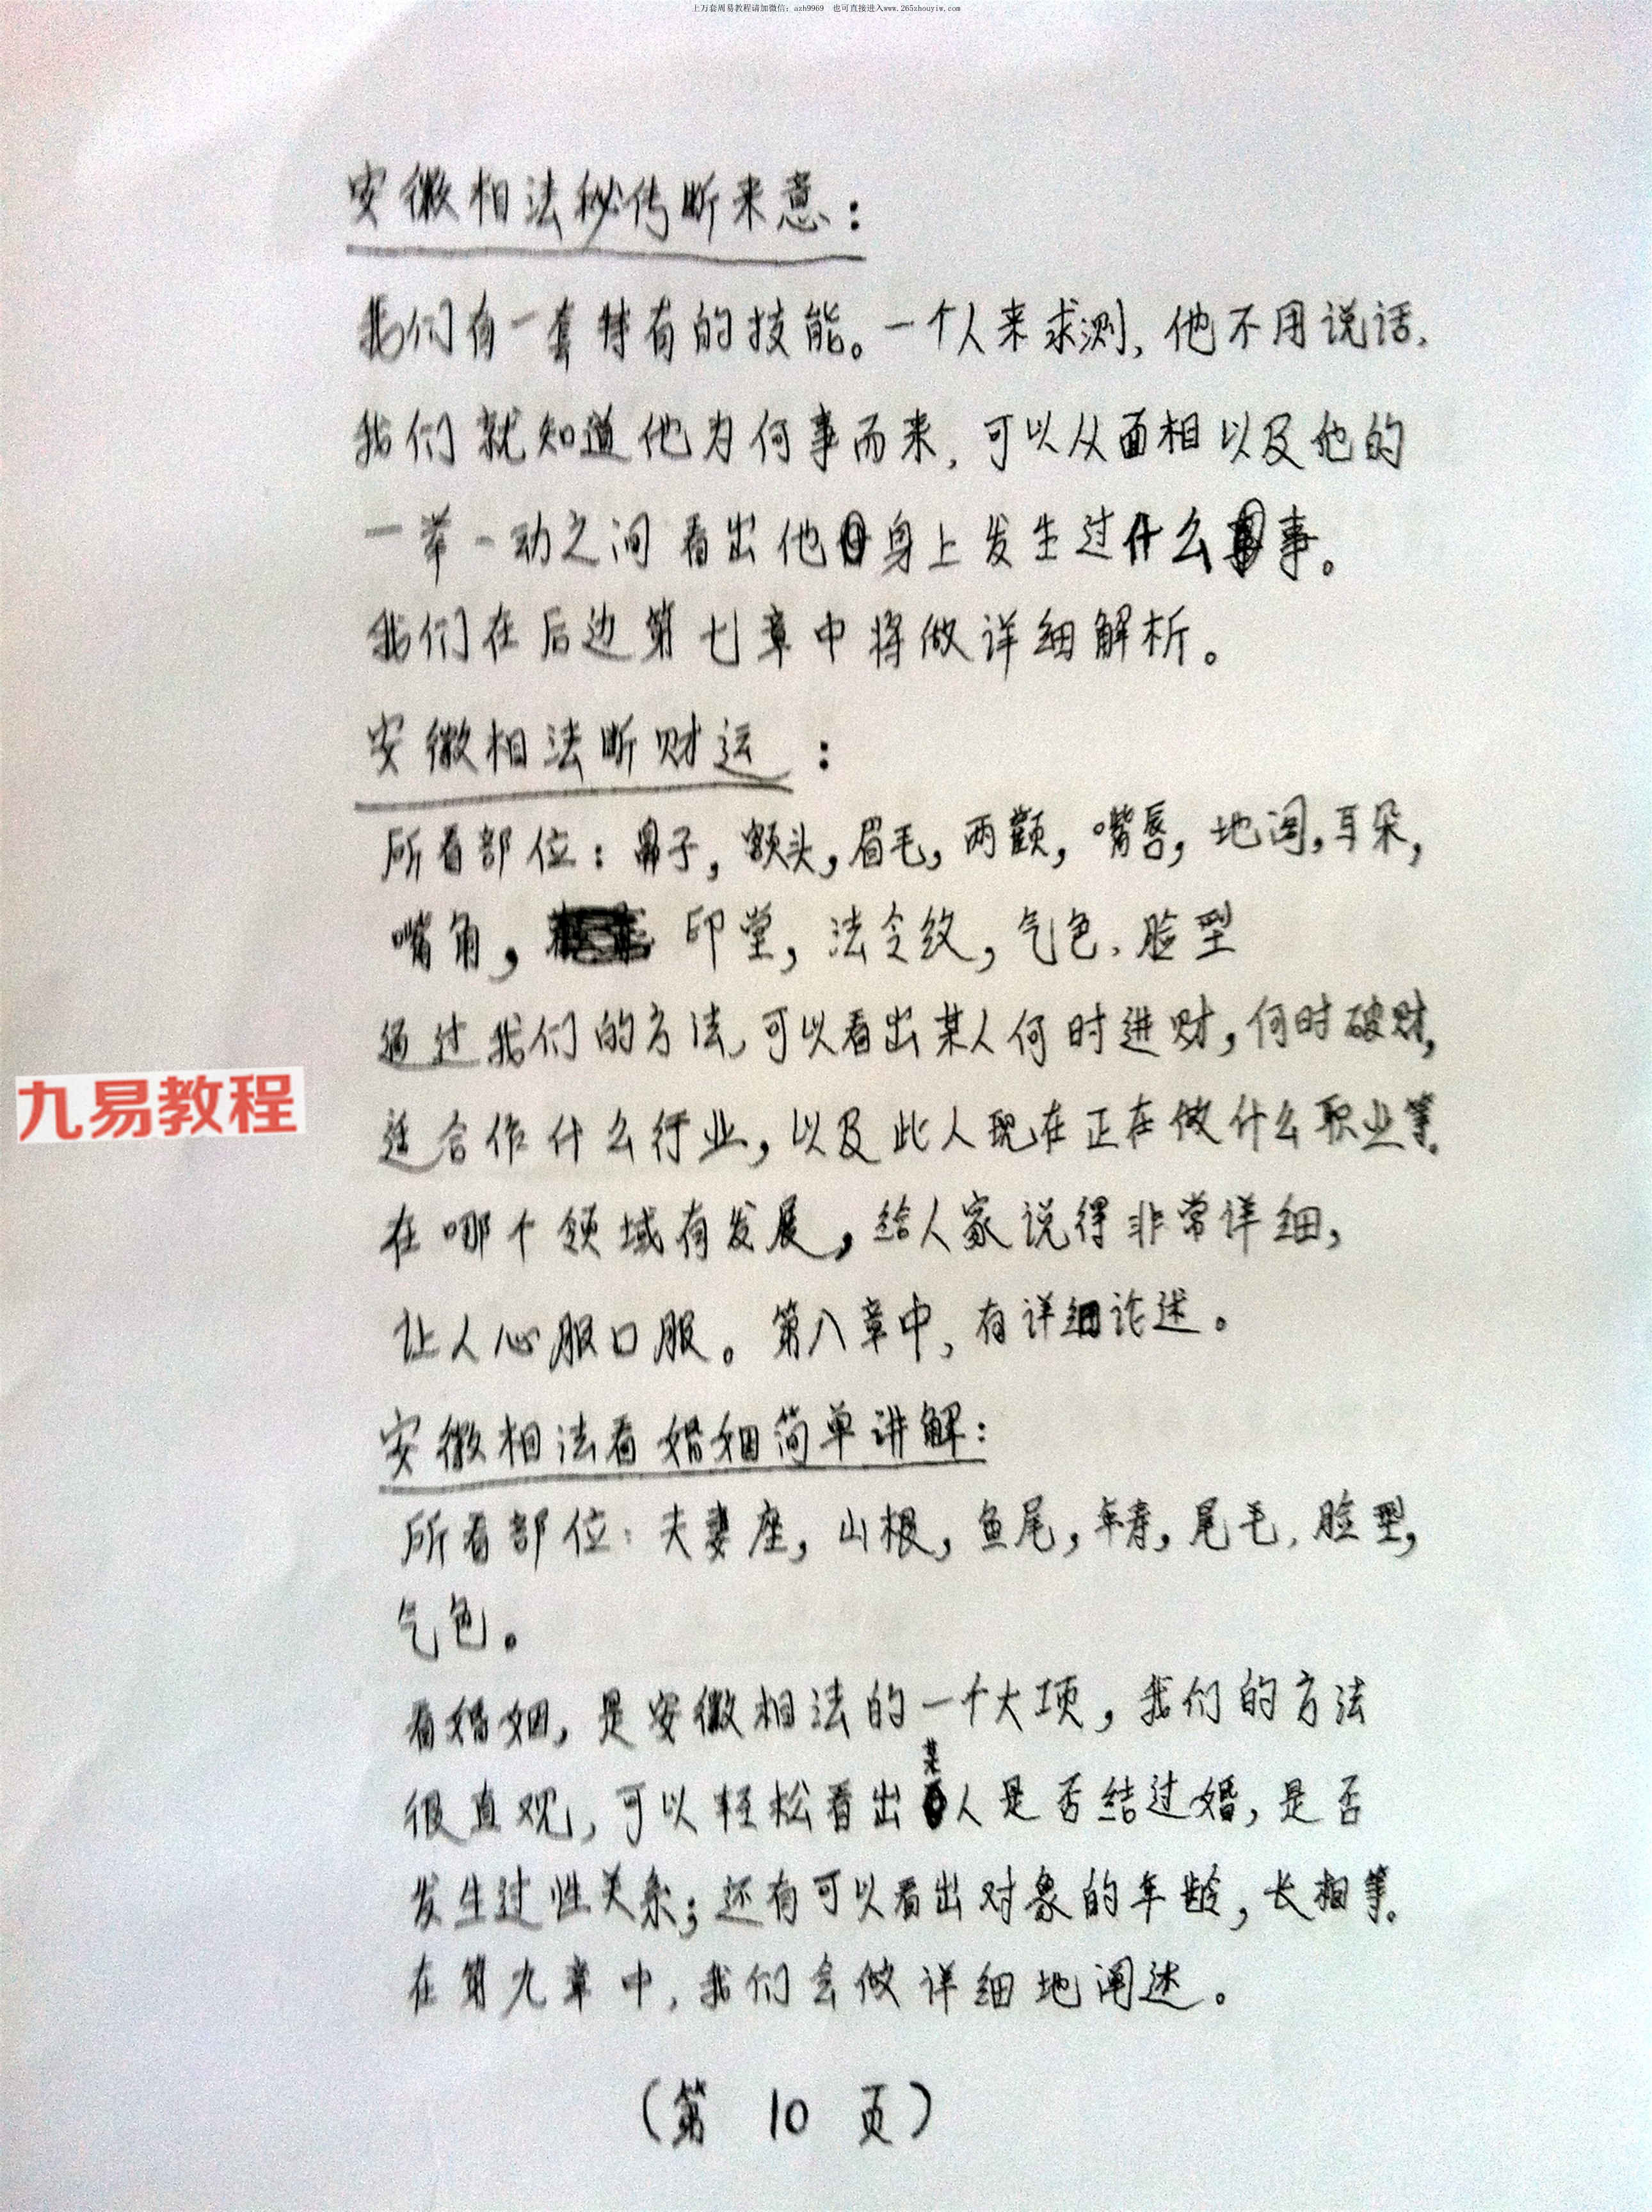 上万套周易教程请加微信：azh9969 也可直接进入www.265zhouyiw.com
安徽相法秘传断来意：
我们有一套特有的技能。一个人来求测，他不用说话，
我们就知道他为何事而来，可以从面相以及他的
一举一动之间看出他身上发生过什么事。
我们在后边第七章中将做详细解析。
安徽相法断财运：
所看部位：鼻子，额头，眉毛，两颧，嘴唇，地阔，耳朵，
嘴角，印堂，法令纹，气色，脸型
通过我们的方法，可以看出某人何时进财，何时破财，
九易教程
适合作什么行业，以及此人现在正在做什么职业等。
在哪个领域有发展，给人家说得非常详细，
让人心服口服。第八章中，有详细论述。
安徽相法看婚姻简单讲解：
所看部位：夫妻座，山根，鱼尾，年寿，尾毛，脸型，
气色。
看婚姻，是安徽相法的一个大项，我们的方法
很直观，可以轻松看出某人是否结过婚，是否
发生过性关系；还有可以看出对象的年龄，长相等。
在第九章中，我们会做详细地阐述。
（第 10 页）